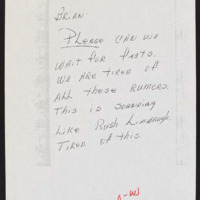 BRIAN:
PLEASE CAN WE
WAIT FOR FACTS.
WE ARE TIRED OF
ALL THESE RUMORS.
THIS IS SOUNDING
LIKE RUSH LIMBAUGH.
TIRED OF THIS.